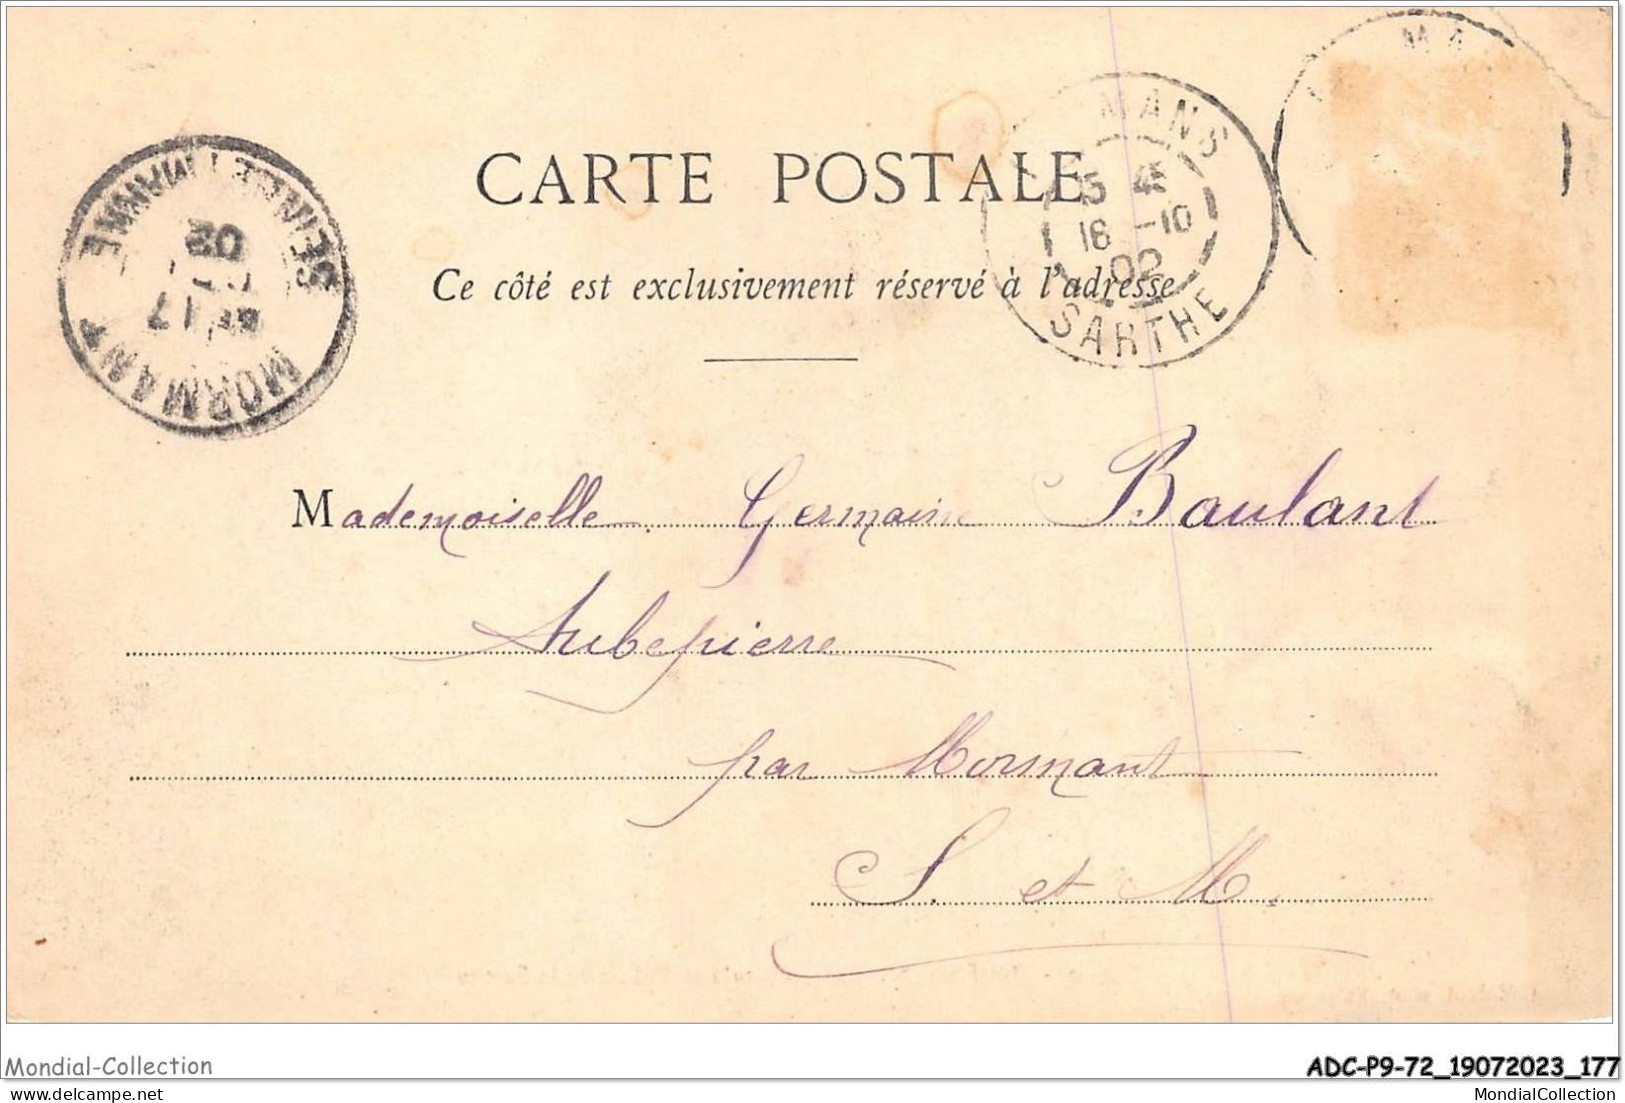 MANS
SARTHE
5 45
16 -10
02
SEINE ET MARNE
17
02
MORMANT
CARTE POSTALE
Ce côté est exclusivement réservé à l'adresse
Mademoiselle Germaine Baulant
Aubepierre
par Mormant
S. et M.
Mondial-Collection
ADC-P9-72_19072023_177
www.delcampe.net
MondialCollection